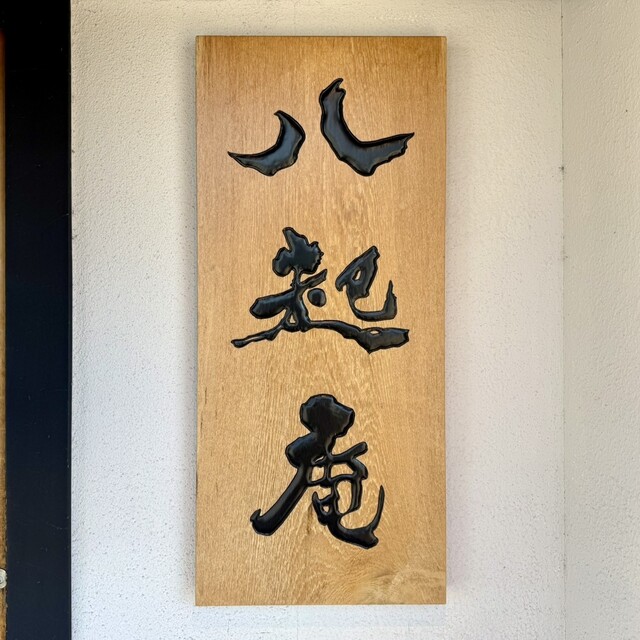 八起庵